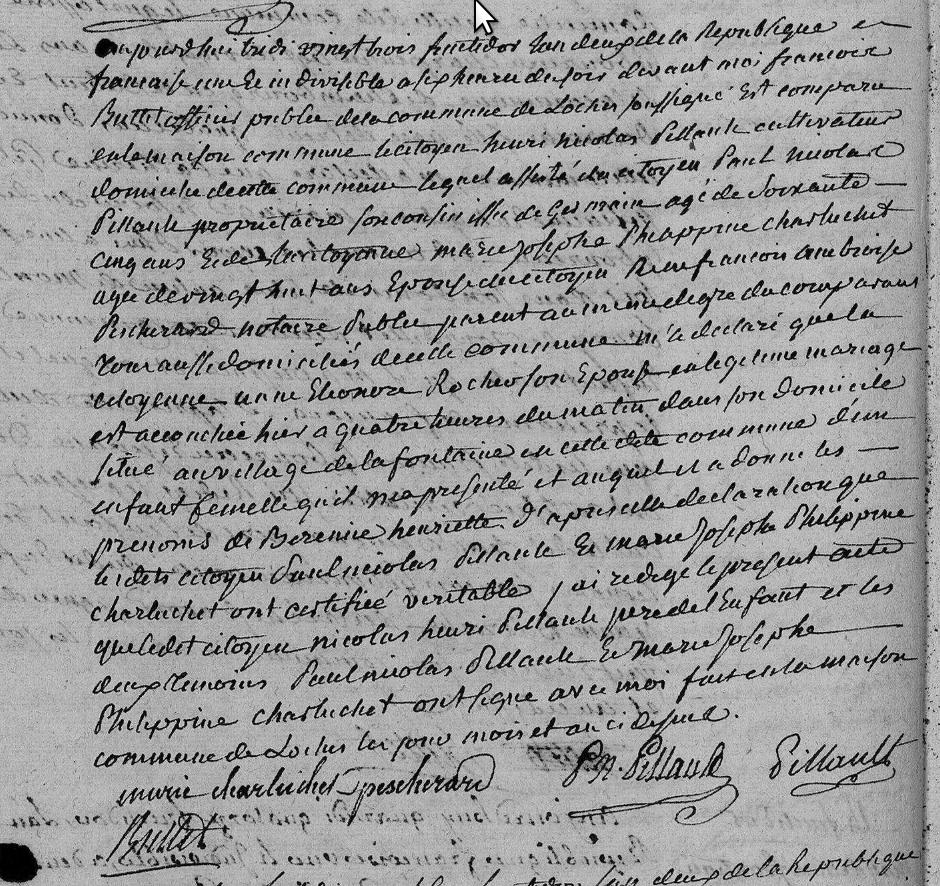 aujourdhui tridi vingt trois fructidor Lan deux de la Republique
francaise une Et indivisible a six heures du soir devant moi francois
Buttet officier public de la commune de Loches soussigné Est comparu
en la maison commune le citoyen henri nicolas Pillault cultivateur
domicilié de cette commune lequel assisté du citoyen Paul nicolas
Pillault proprietaire son cousin issu de Germain agé de Soixante
cinq ans Et de la citoyenne marie josephe Philippine charluchet
agée de vingt huit ans Epouse du citoyen René francois ambroise
Pescherard notaire Public parent au meme degre du comparant
tous aussi domiciliés de cette commune m'a declaré que la
citoyenne anne Eleonore Rocher son Epouse en legitime mariage
est accouchée hier a quatre heures du matin dans son domicile
situé au village de la fontaine en cette dite commune d'un
enfant femelle qu'il m'a presenté et auquel il a donné les
prenoms de Berenice henriette. d'apres cette declaration que
lesdits citoyen Paul nicolas Pillault Et marie Josephe Philippine
charluchet ont certifiée veritable j'ai redigé le present acte
que ledit citoyen nicolas henri Pillault pere de l'Enfant et les
deux temoins Paul nicolas Pillault Et marie Josephe
Philippine charluchet ont signé avec moi fait en la maison
commune de Loches les jour mois et an ci dessus.
marie charluchet pescherard P. N. Pillault Pillault
Buttet
an deux de la Republique